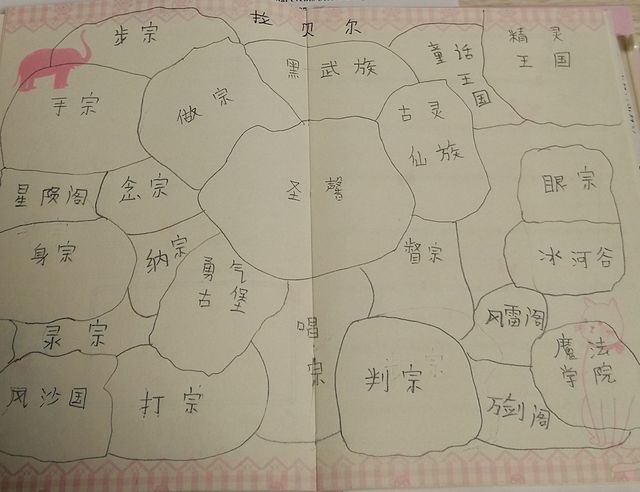 拉贝尔
步宗
黑武族
童话
王国
精灵
王国
手宗
做宗
古灵
仙族
星陨阁
念宗
圣馨
眼宗
身宗
纳宗
勇气
古堡
督宗
冰河谷
录宗
唱宗
风雷阁
魔法
学院
风沙国
打宗
判宗
万剑阁